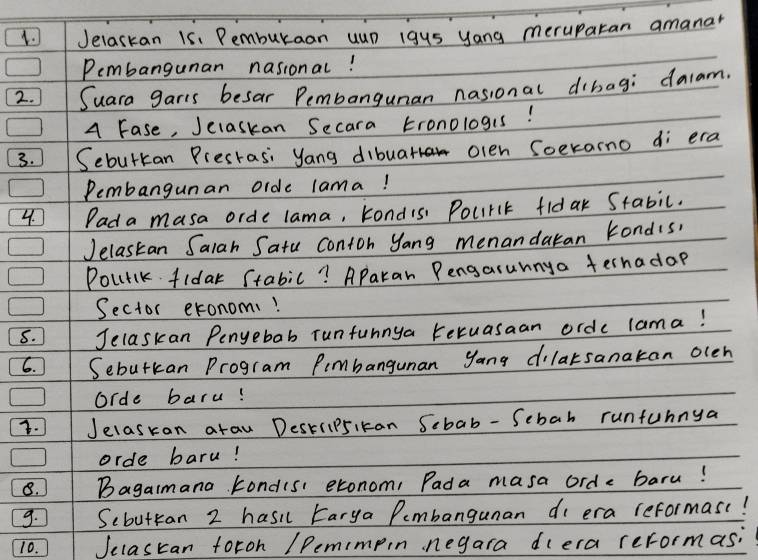 1. Jelaskan isi Pembukaan UUD 1945 yang merupakan amanat
Pembangunan nasional !
2. Suara garis besar Pembangunan nasional dibagi dalam.
4 Fase, Jelaskan Secara Kronologis !
3. Seburkan Prestasi yang dibuat oleh Soekarno di era
Pembangunan orde lama !
4. Pada masa orde lama, kondisi Politik tidak Stabil.
Jelaskan Salah Satu Contoh yang menandakan kondisi
Politik tidak Stabil ? APakah Pengaruhnya terhadap
Sector ekonomi !
5. Jelaskan Penyebab runtuhnya kekuasaan orde lama !
6. Sebutkan Program Pembangunan yang dilaksanakan oleh
orde baru !
7. Jelaskan atau Deskripsikan Sebab-Sebab runtuhnya
orde baru !
8. Bagaimana kondisi ekonomi Pada masa orde baru !
9. Sebutkan 2 hasil karya Pembangunan di era reformasi !
10. Jelaskan tokoh / Pemimpin negara di era reformasi !